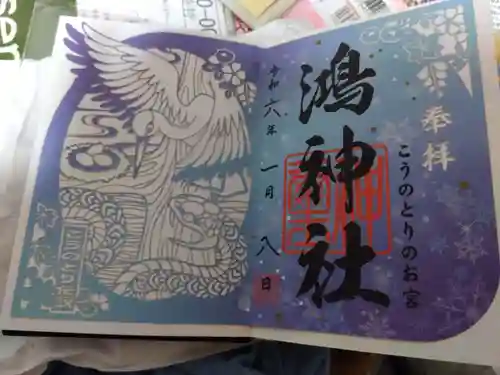 奉拝
こうのとりのお宮
鴻神社
令和六年
一月
八日